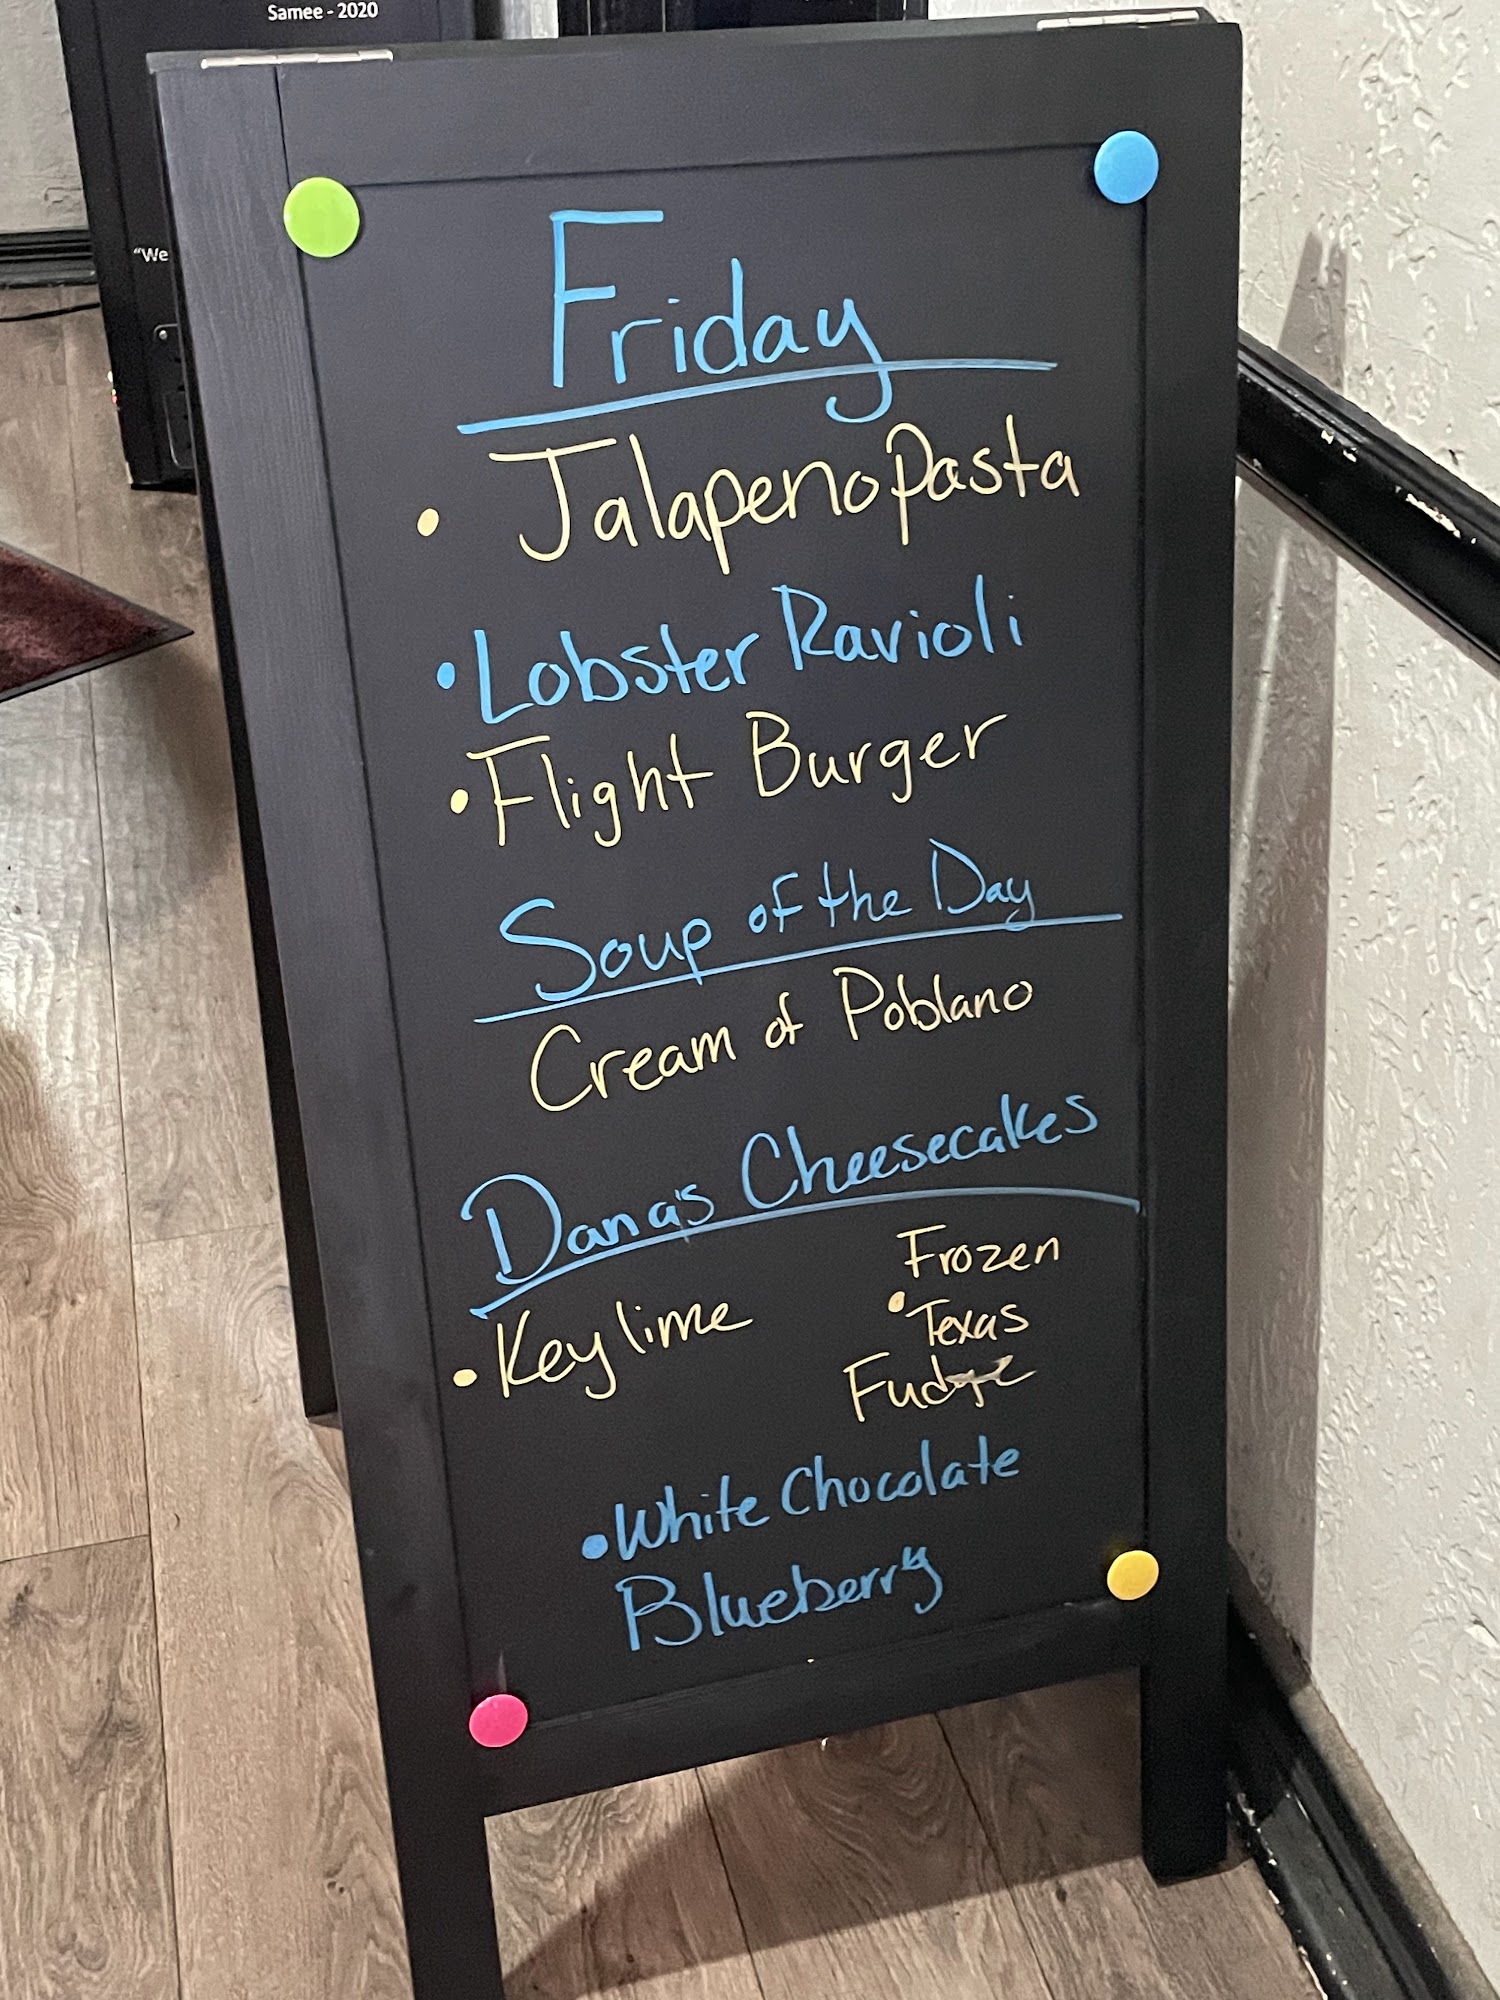 Samee - 2020
"We
Friday
• Jalapeno Pasta
• Lobster Ravioli
• Flight Burger
Soup of the Day
Cream of Poblano
Dana's Cheesecakes
• Key lime
Frozen
• Texas
Fudge
• White Chocolate
Blueberry